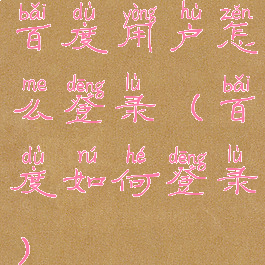 bǎi dù yòng hù zěn
百度用户怎
me dēng lù bǎi
么登录（百
dù rú hé dēng lù
度如何登录
）